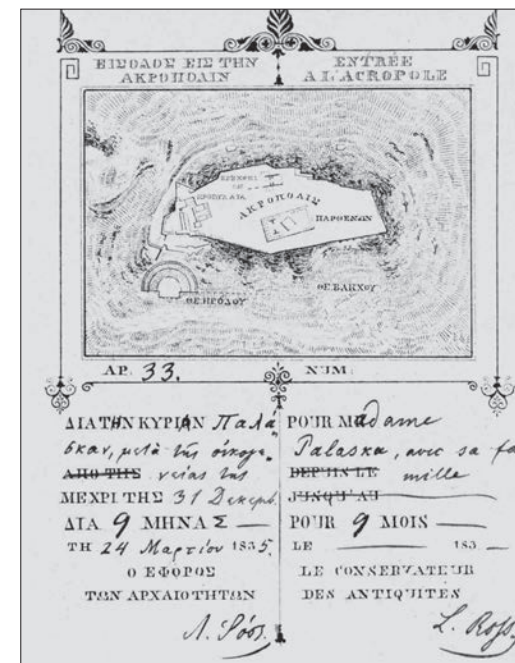 ΕΙΣΟΔΟΣ ΕΙΣ ΤΗΝ
ΑΚΡΟΠΟΛΙΝ
ENTRÉE
A L'ACROPOLE
ΠΡΟΠΥΛΑΙΑ
ΑΚΡΟΠΟΛΙΣ
ΠΑΡΘΕΝΩΝ
ΘΕ ΗΡΩΔΟΥ
ΘΕ ΒΑΚΧΟΥ
ΑΡ. 33.
NUM:
ΔΙΑ ΤΗΝ ΚΥΡΙΑΝ Παλά
σκαν, μετὰ τῆς οἰκογε.
ΑΠΟ ΤΗΣ νείας της
ΜΕΧΡΙ ΤΗΣ 31 Δεκεμβ.
ΔΙΑ 9 ΜΗΝΑΣ
ΤΗ 24 Μαρτίου 1835.
Ο ΕΦΟΡΟΣ
ΤΩΝ ΑΡΧΑΙΟΤΗΤΩΝ
Λ. Ῥόσς.
POUR Madame
Palaska, avec sa fa
DEPUIS LE mille
JUSQU'AU
POUR 9 MOIS
LE 183
LE CONSERVATEUR
DES ANTIQUITÉS
L. Ross